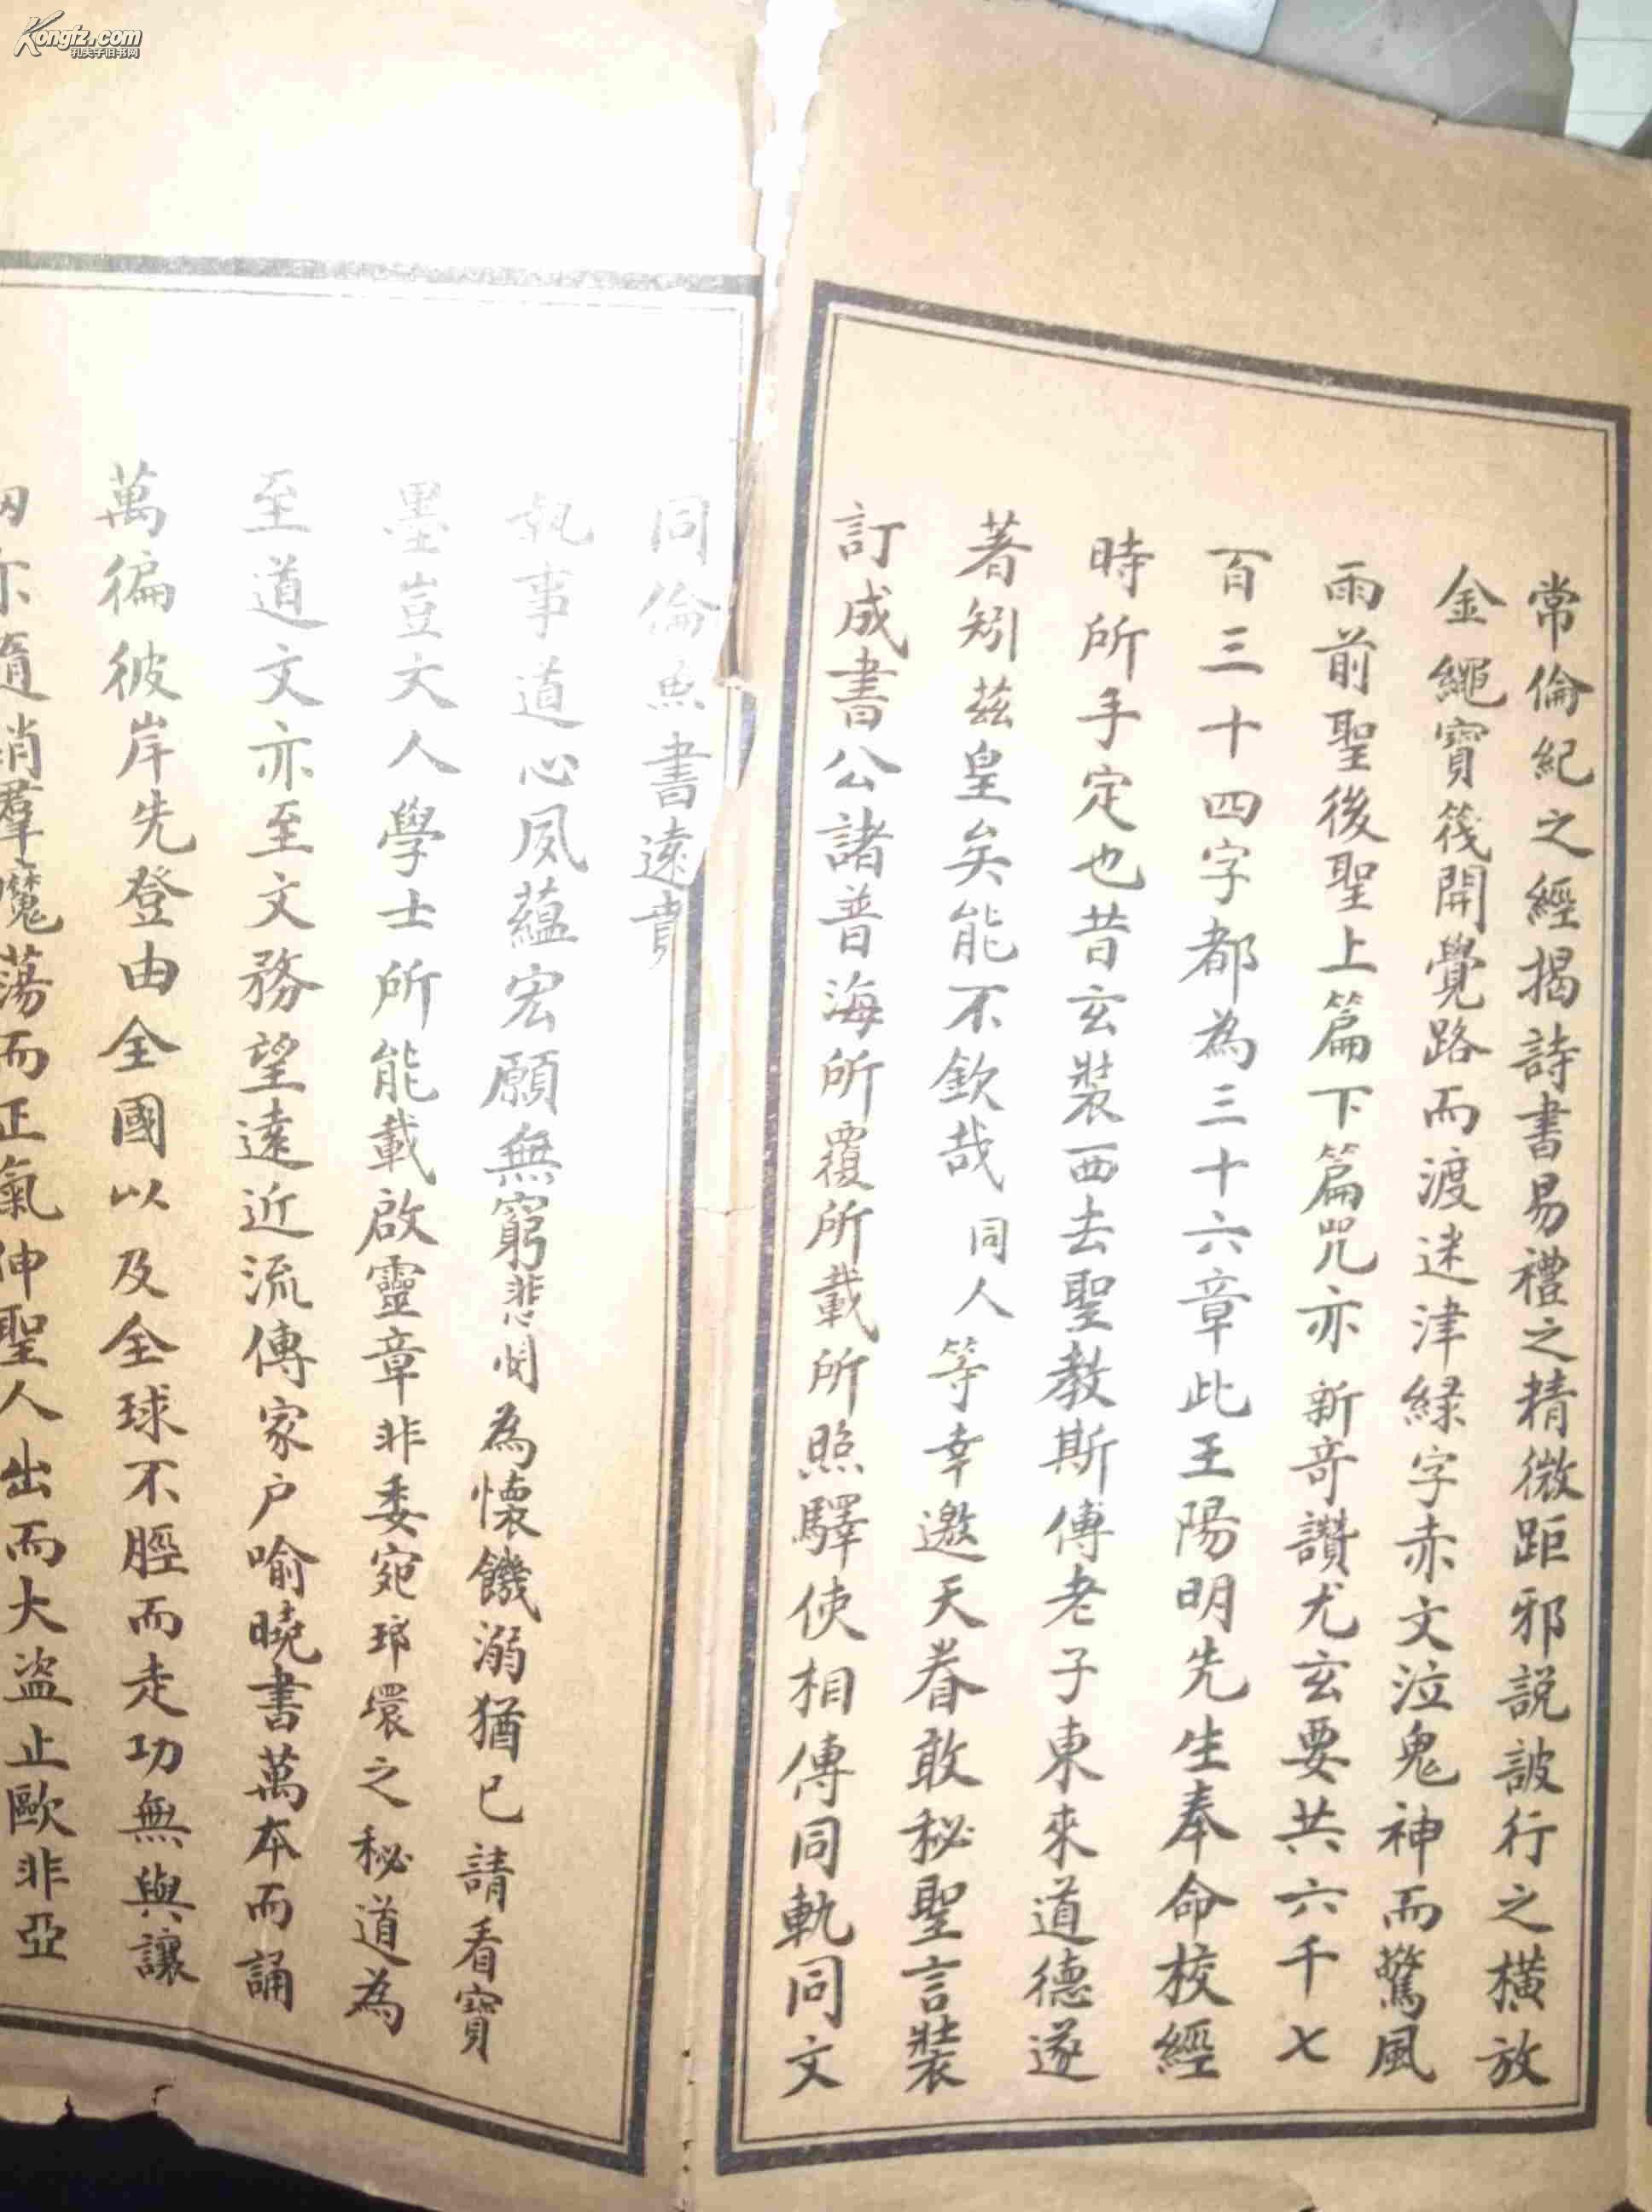 Kongfz.com
孔夫子旧书网
常倫紀之經揭詩書易禮之精微距邪説詖行之橫放
金繩寶筏開覺路而渡迷津緑字赤文泣鬼神而驚風
雨前聖後聖上篇下篇咒亦新奇讚尤玄要共六千七
百三十四字都為三十六章此王陽明先生奉命校經
時所手定也昔玄裝西去聖教斯傳老子東來道德遂
著矧茲皇矣能不欽哉同人等幸邀天眷敢秘聖言裝
訂成書公諸普海所覆所載所照驛使相傳同軌同文
同倫魚書遠賁
執事道心夙蘊宏願無窮悲閔為懷饑溺猶己請看寶
墨豈文人學士所能載啟靈章非委宛琅環之秘道為
至道文亦至文務望遠近流傳家户喻曉書萬本而誦
萬徧彼岸先登由全國以及全球不脛而走功無與讓
亦隨消羣魔蕩而正氣伸聖人出而大盜止歐非亞